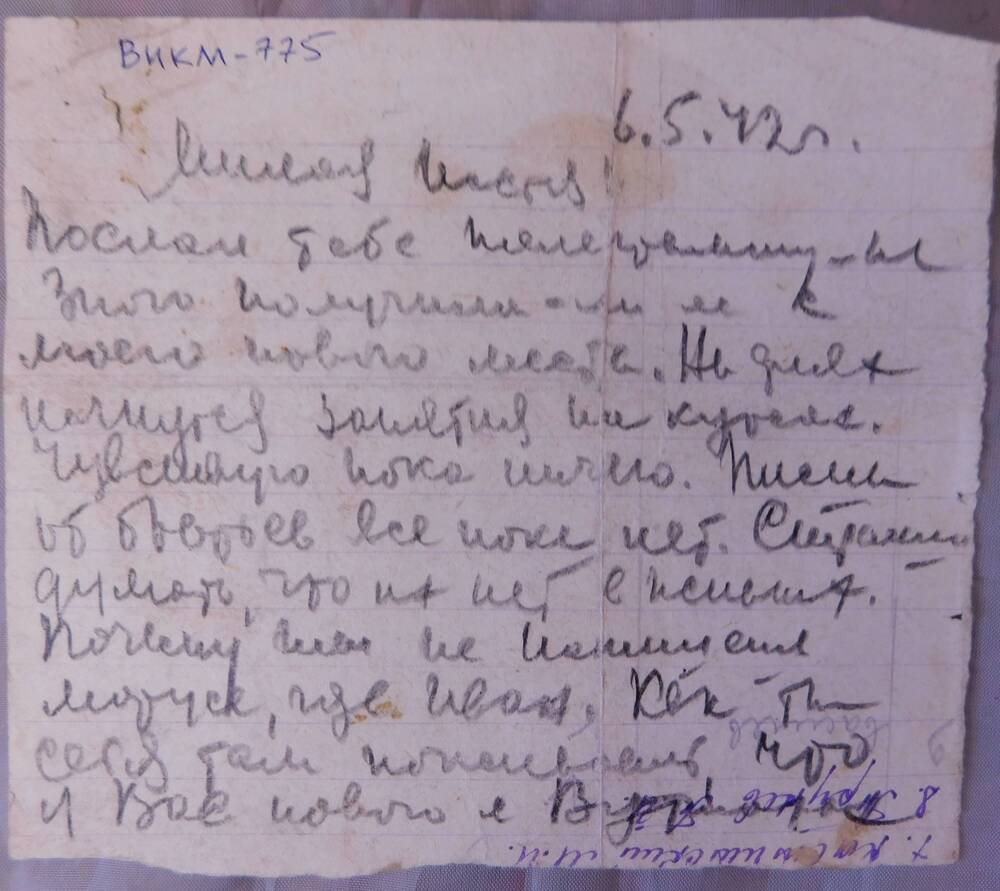 ВИКМ-775
6.5.42г.
Милая Настя!
Послал тебе телеграмму-не
знаю получила-ли ее с
моего нового места. На днях
начнутся занятия на курсах.
Чувствую пока ничего. Писем
от братьев все пока нет. Страшно
думать, что их нет в живых.
Почему ты не написала
Маруся, где Иван. Как ты
себя там чувствуешь что
у Вас нового в